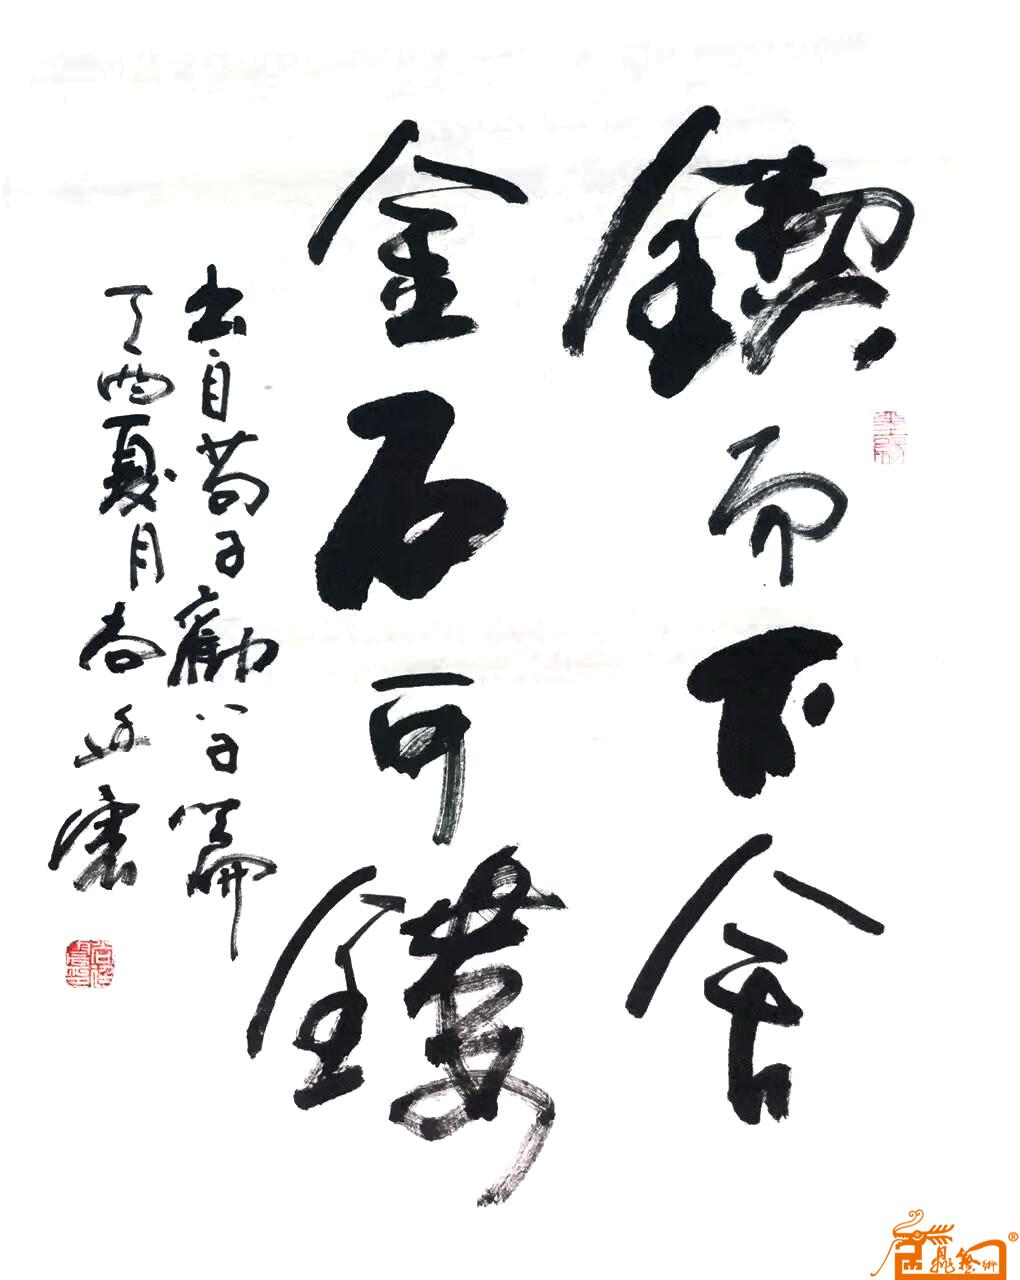 锲而不舍
金石可镂
出自荀子勸学篇
丁酉夏月尚